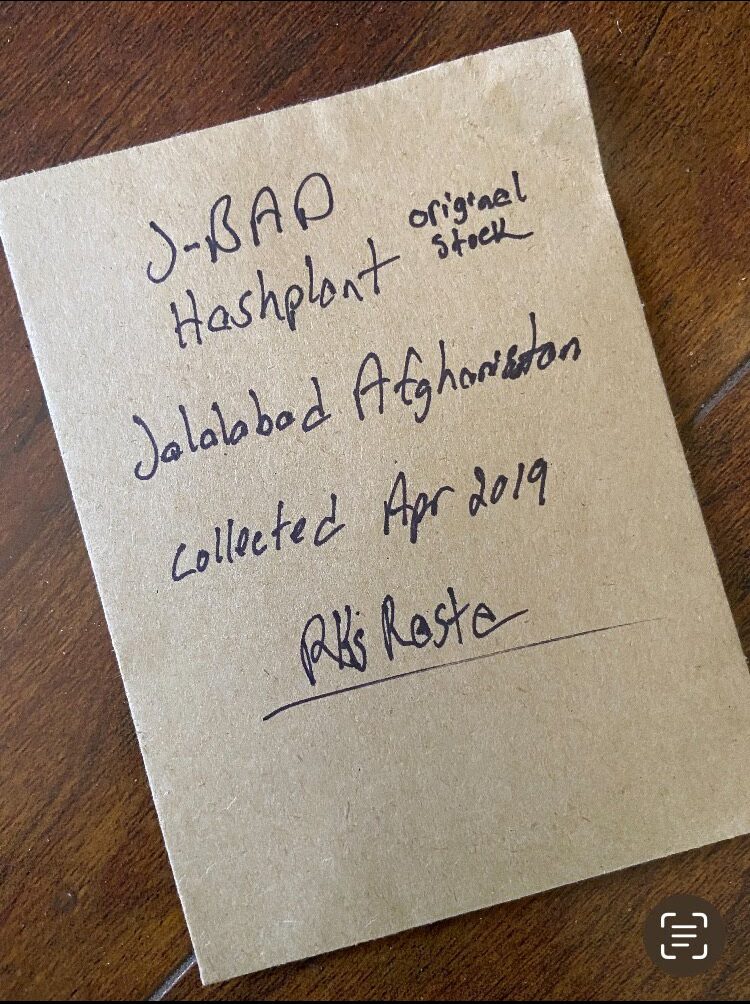 J-BAD
Hashplant original
stock
Jalalabad Afghanistan
collected Apr 2019
RKs Rasta